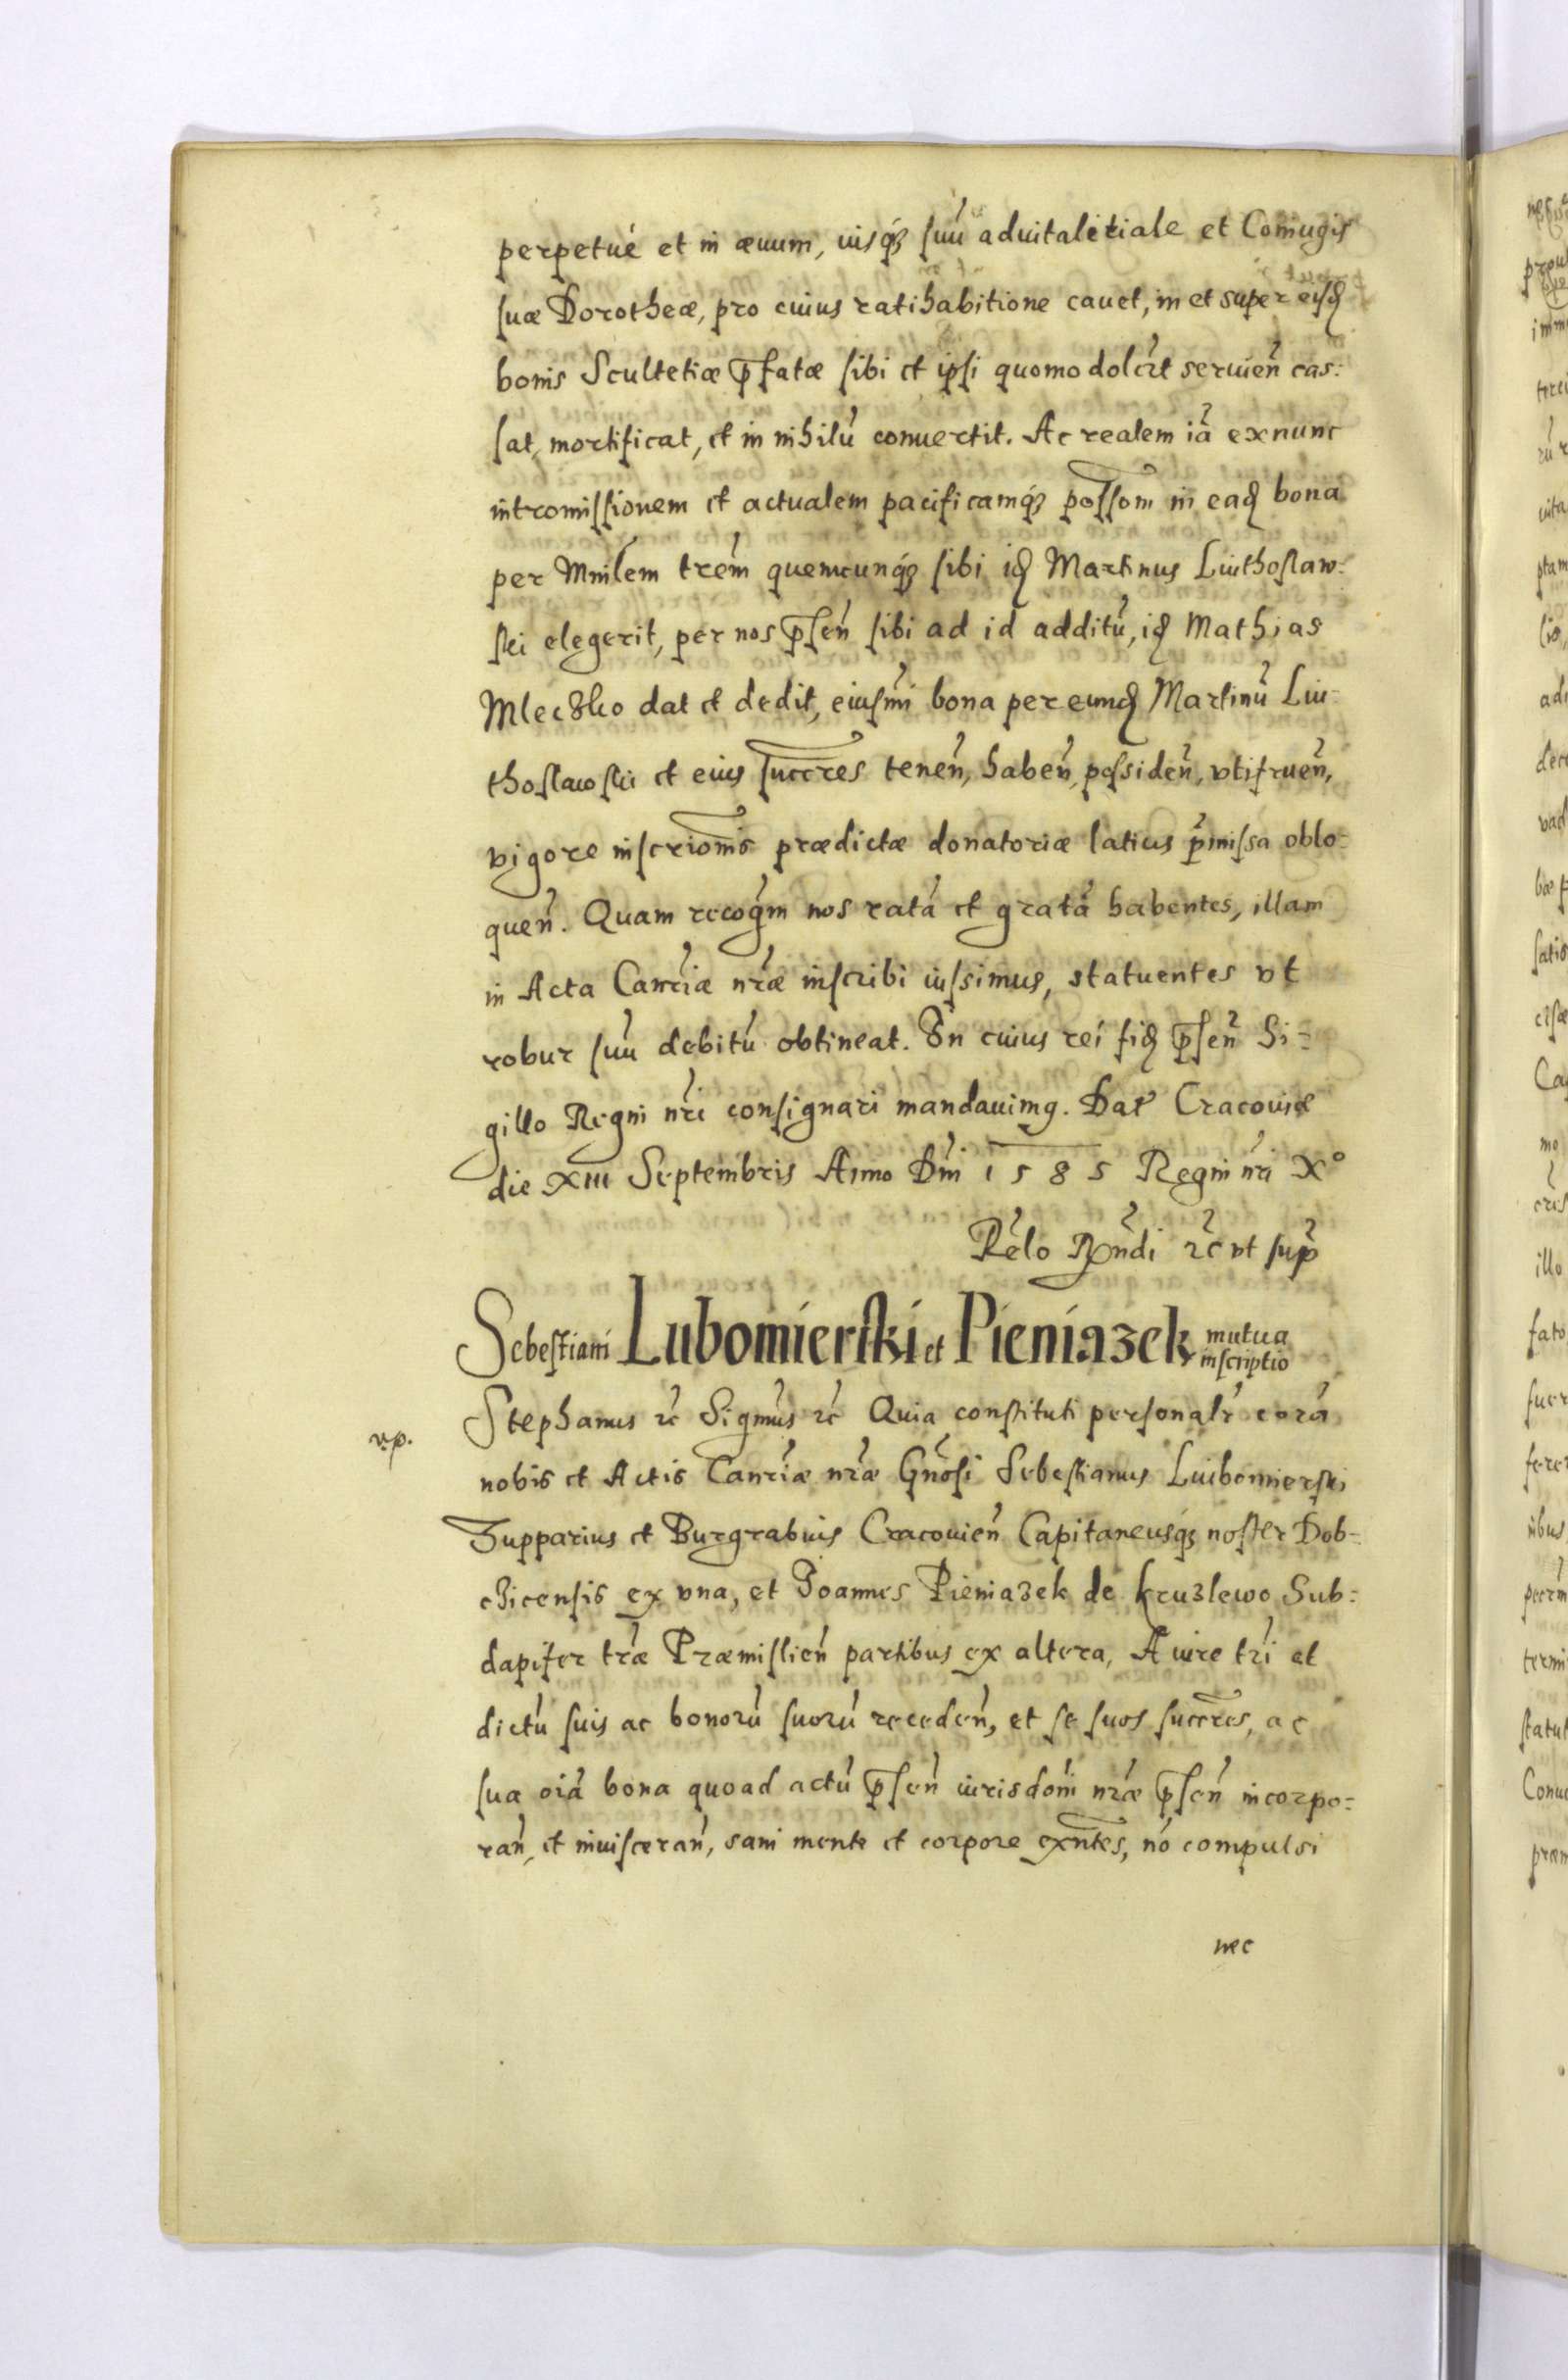 perpetué et in æuum, iusq́ꝫ suū aduitalitiale et Coniugis
suæ Dorotheæ, pro cuius ratihabitione cauet, in et super eisd̄
bonis Scultetiæ p̄fatæ sibi et ipsi quomodolībt seruien̄ cas:
sat, mortificat, et in nihilū conuertit. Ac realem iā ex nunc
intromissionem et actualem pacificamq́ꝫ possom̄ in ead̄ bona
per Mnīlem trēm quemcunq́ꝫ sibi id̄ Martinus Luthoslaw:
ski elegerit, per nos p̄sen̄ sibi ad id additū, id̄ Mathias
Mleczko dat et dedit, eiusmī bona per eund̄ Martinū Lu:
thoslawski et eius succr̄es tenen̄, haben̄, possiden̄, vtifruen̄,
vigore inscriom̄s prædictæ donatoriæ latius p̄missa oblo:
quen̄. Quam recoḡm nos ratā et gratā habentes, illam
in Acta Canc̄iæ nr̄æ inscribi iussimus, statuentes vt
robur suū debitū obtineat. In cuius rei fid̄ p̄sen̄ Si:
gillo Regni nr̄i consignari mandauimꝯ. Dat̄ Cracouiæ
die XIII Septembris Anno Dn̄i 1585 Regni nr̄i X°
Rēlo Rn̄di ꝛc̄ vt sup̄
Sebestiani Lubomierski et Pieniazek mutua
inscriptio
Stephanus ꝛc̄ Sigm̄us ꝛc̄ Quia constituti personalr̄ corā
vp.
nobis et Actis Canc̄iæ nr̄æ Gn̄osi Sebestianus Luibomierski
Zupparius et Burgrabius Cracouien̄ Capitaneusq́ꝫ noster Dob:
czicensis ex vna, et Joannes Pieniazek de Kruzlewo Sub:
dapifer tr̄æ Præmislien̄ partibus ex altera, A iure tr̄i et
dictū suis ac bonorū suorū receden̄, et se suos succr̄es, ac
sua oīa bona quoad actū p̄sen̄ iurisdom̄ nr̄æ p̄sen̄ incorpo:
ran̄, et inuisceran̄, sani mente et corpore exn̄tes, nō compulsi
nec